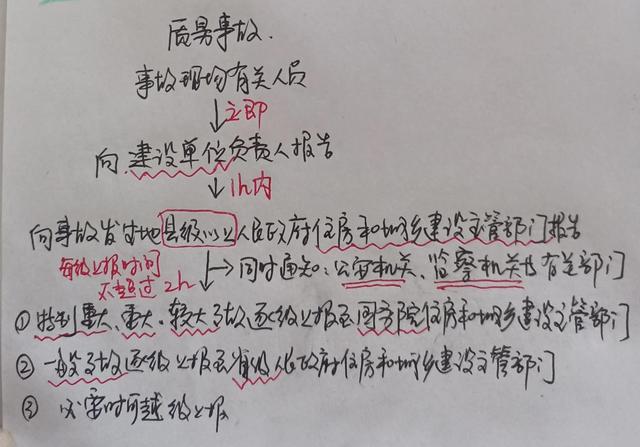 质量事故.
事故现场有关人员
立即
向建设单位负责人报告
1h内
向事故发生地县级以上人民政府住房和城乡建设主管部门报告
每级上报时间
不超过2h
同时通知:公安机关、监察机关等有关部门
①特别重大、重大、较大事故逐级上报至国务院住房和城乡建设主管部门
②一般事故逐级上报至省级人民政府住房和城乡建设主管部门
③必要时可越级上报